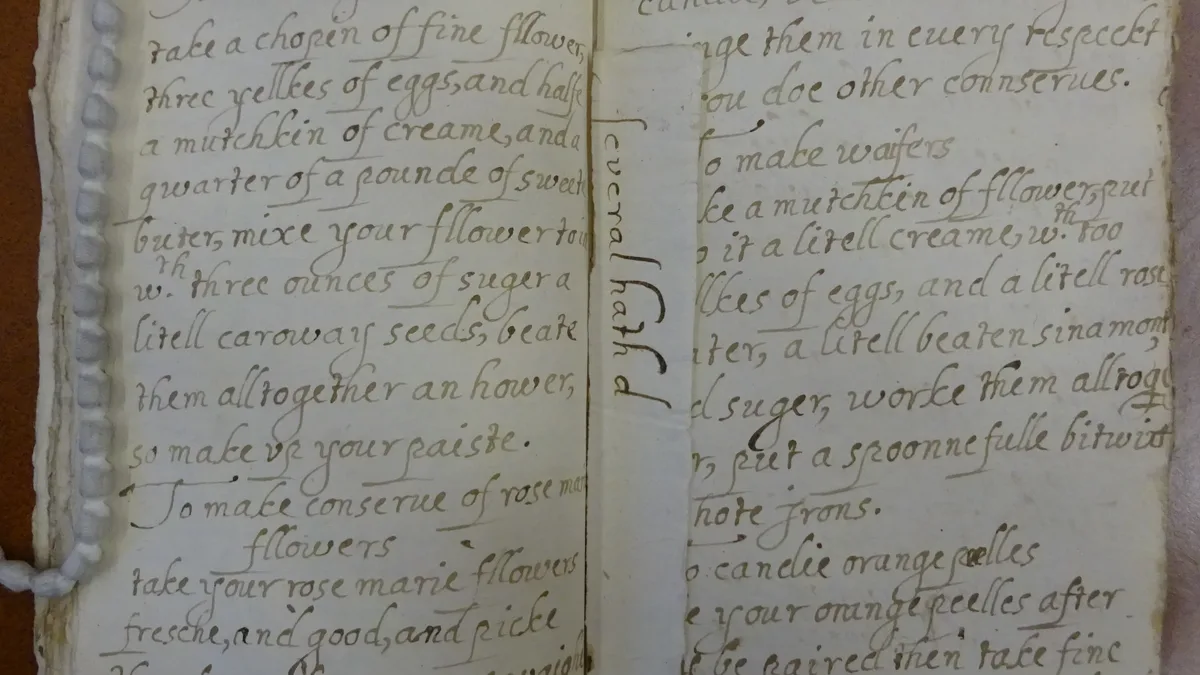 take a chopen of fine fllower,
three yellkes of eggs, and halfe
a mutchkin of creame, and a
qwarter of a pounde of sweet
buter, mixe your fllower to
w.th three ounces of suger a
litell caroway seeds, beate
them alltogether an hower,
so make vp your paiste.
To make conserue of rose mar
fllowers
take your rose marie fllowers
fresche, and good, and picke
severall hath d
nge them in every respeckt
ou doe other connserues.
o make waifers
ke a mutchkin of fllower, put
o it a litell creame, w.th too
llkes of eggs, and a litell rose
ter, a litell beaten sinamont,
d suger, worke them alltoge
r, put a spoonnefulle bitwixt
hote jrons.
o candie orange peelles
e your orange peelles after
e be paired then take fine